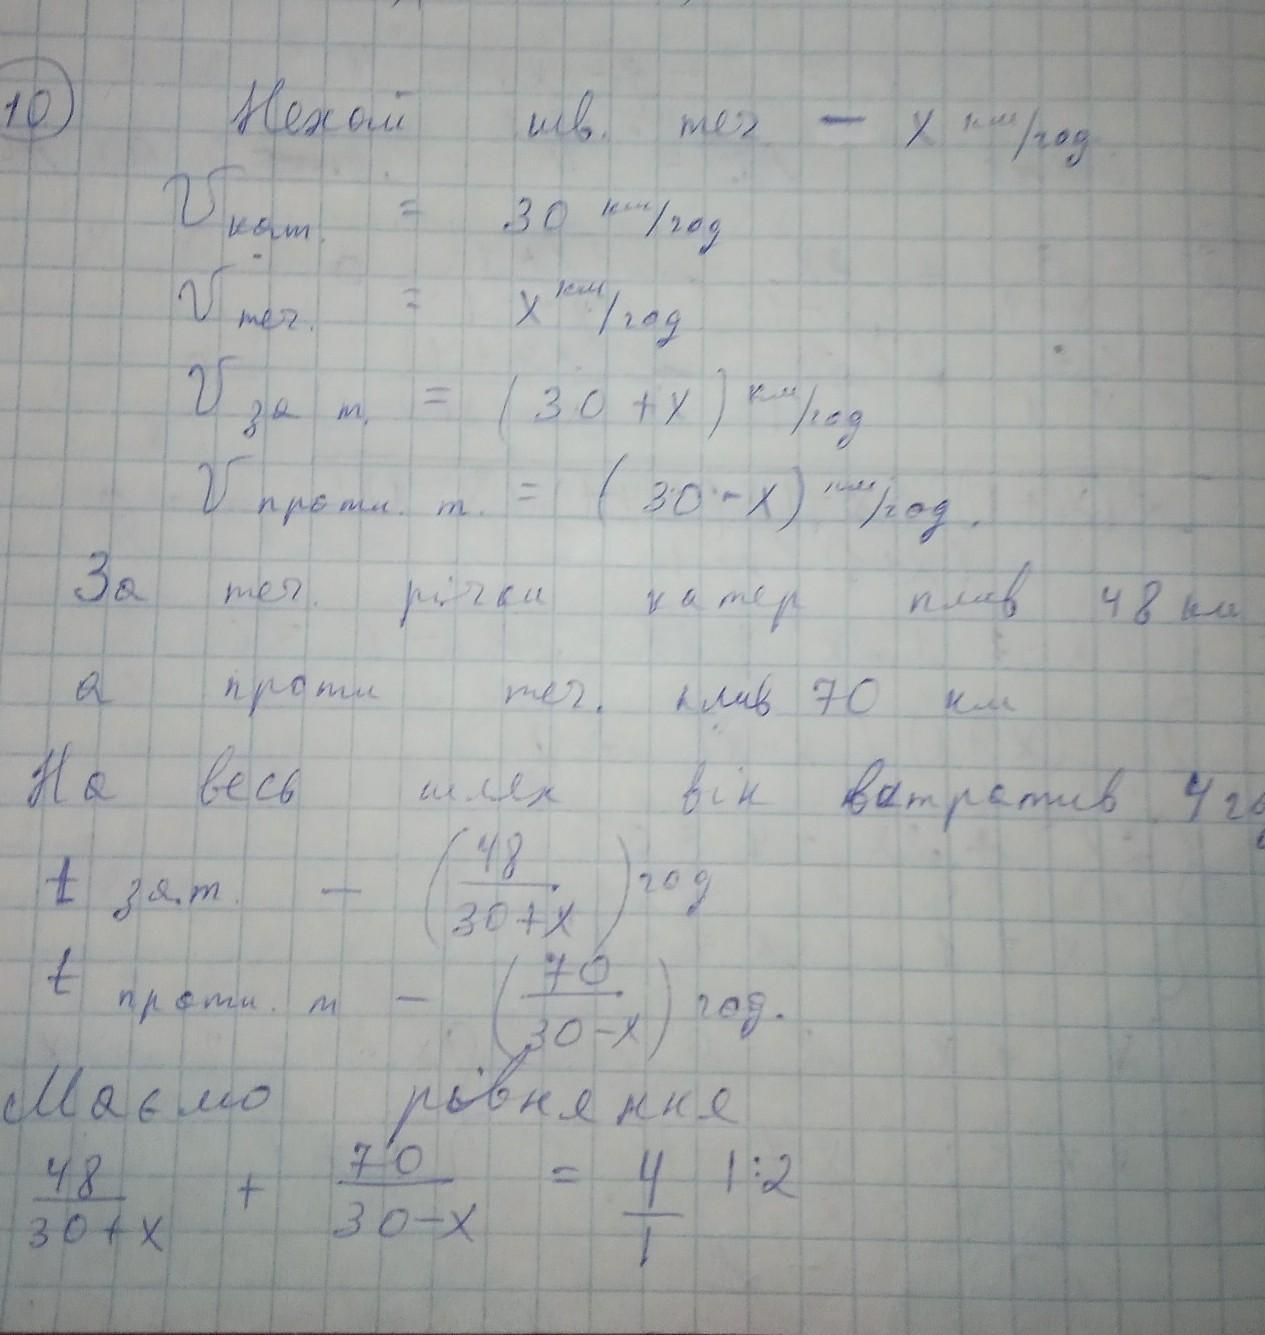 10 Нехай шв. теч – x км/год
V кат. = 30 км/год
V теч. = x км/год
V за т. = (30 + x) км/год
V проти. т. = (30 - x) км/год.
За теч. річки катер плив 48 км
а проти теч. плив 70 км
На весь шлях він витратив 4 год
t за.т. – (48/(30+x)) год
t проти. т – (70/(30-x)) год.
Маємо рівняння
48/(30+x) + 70/(30-x) = 4/1 |:2